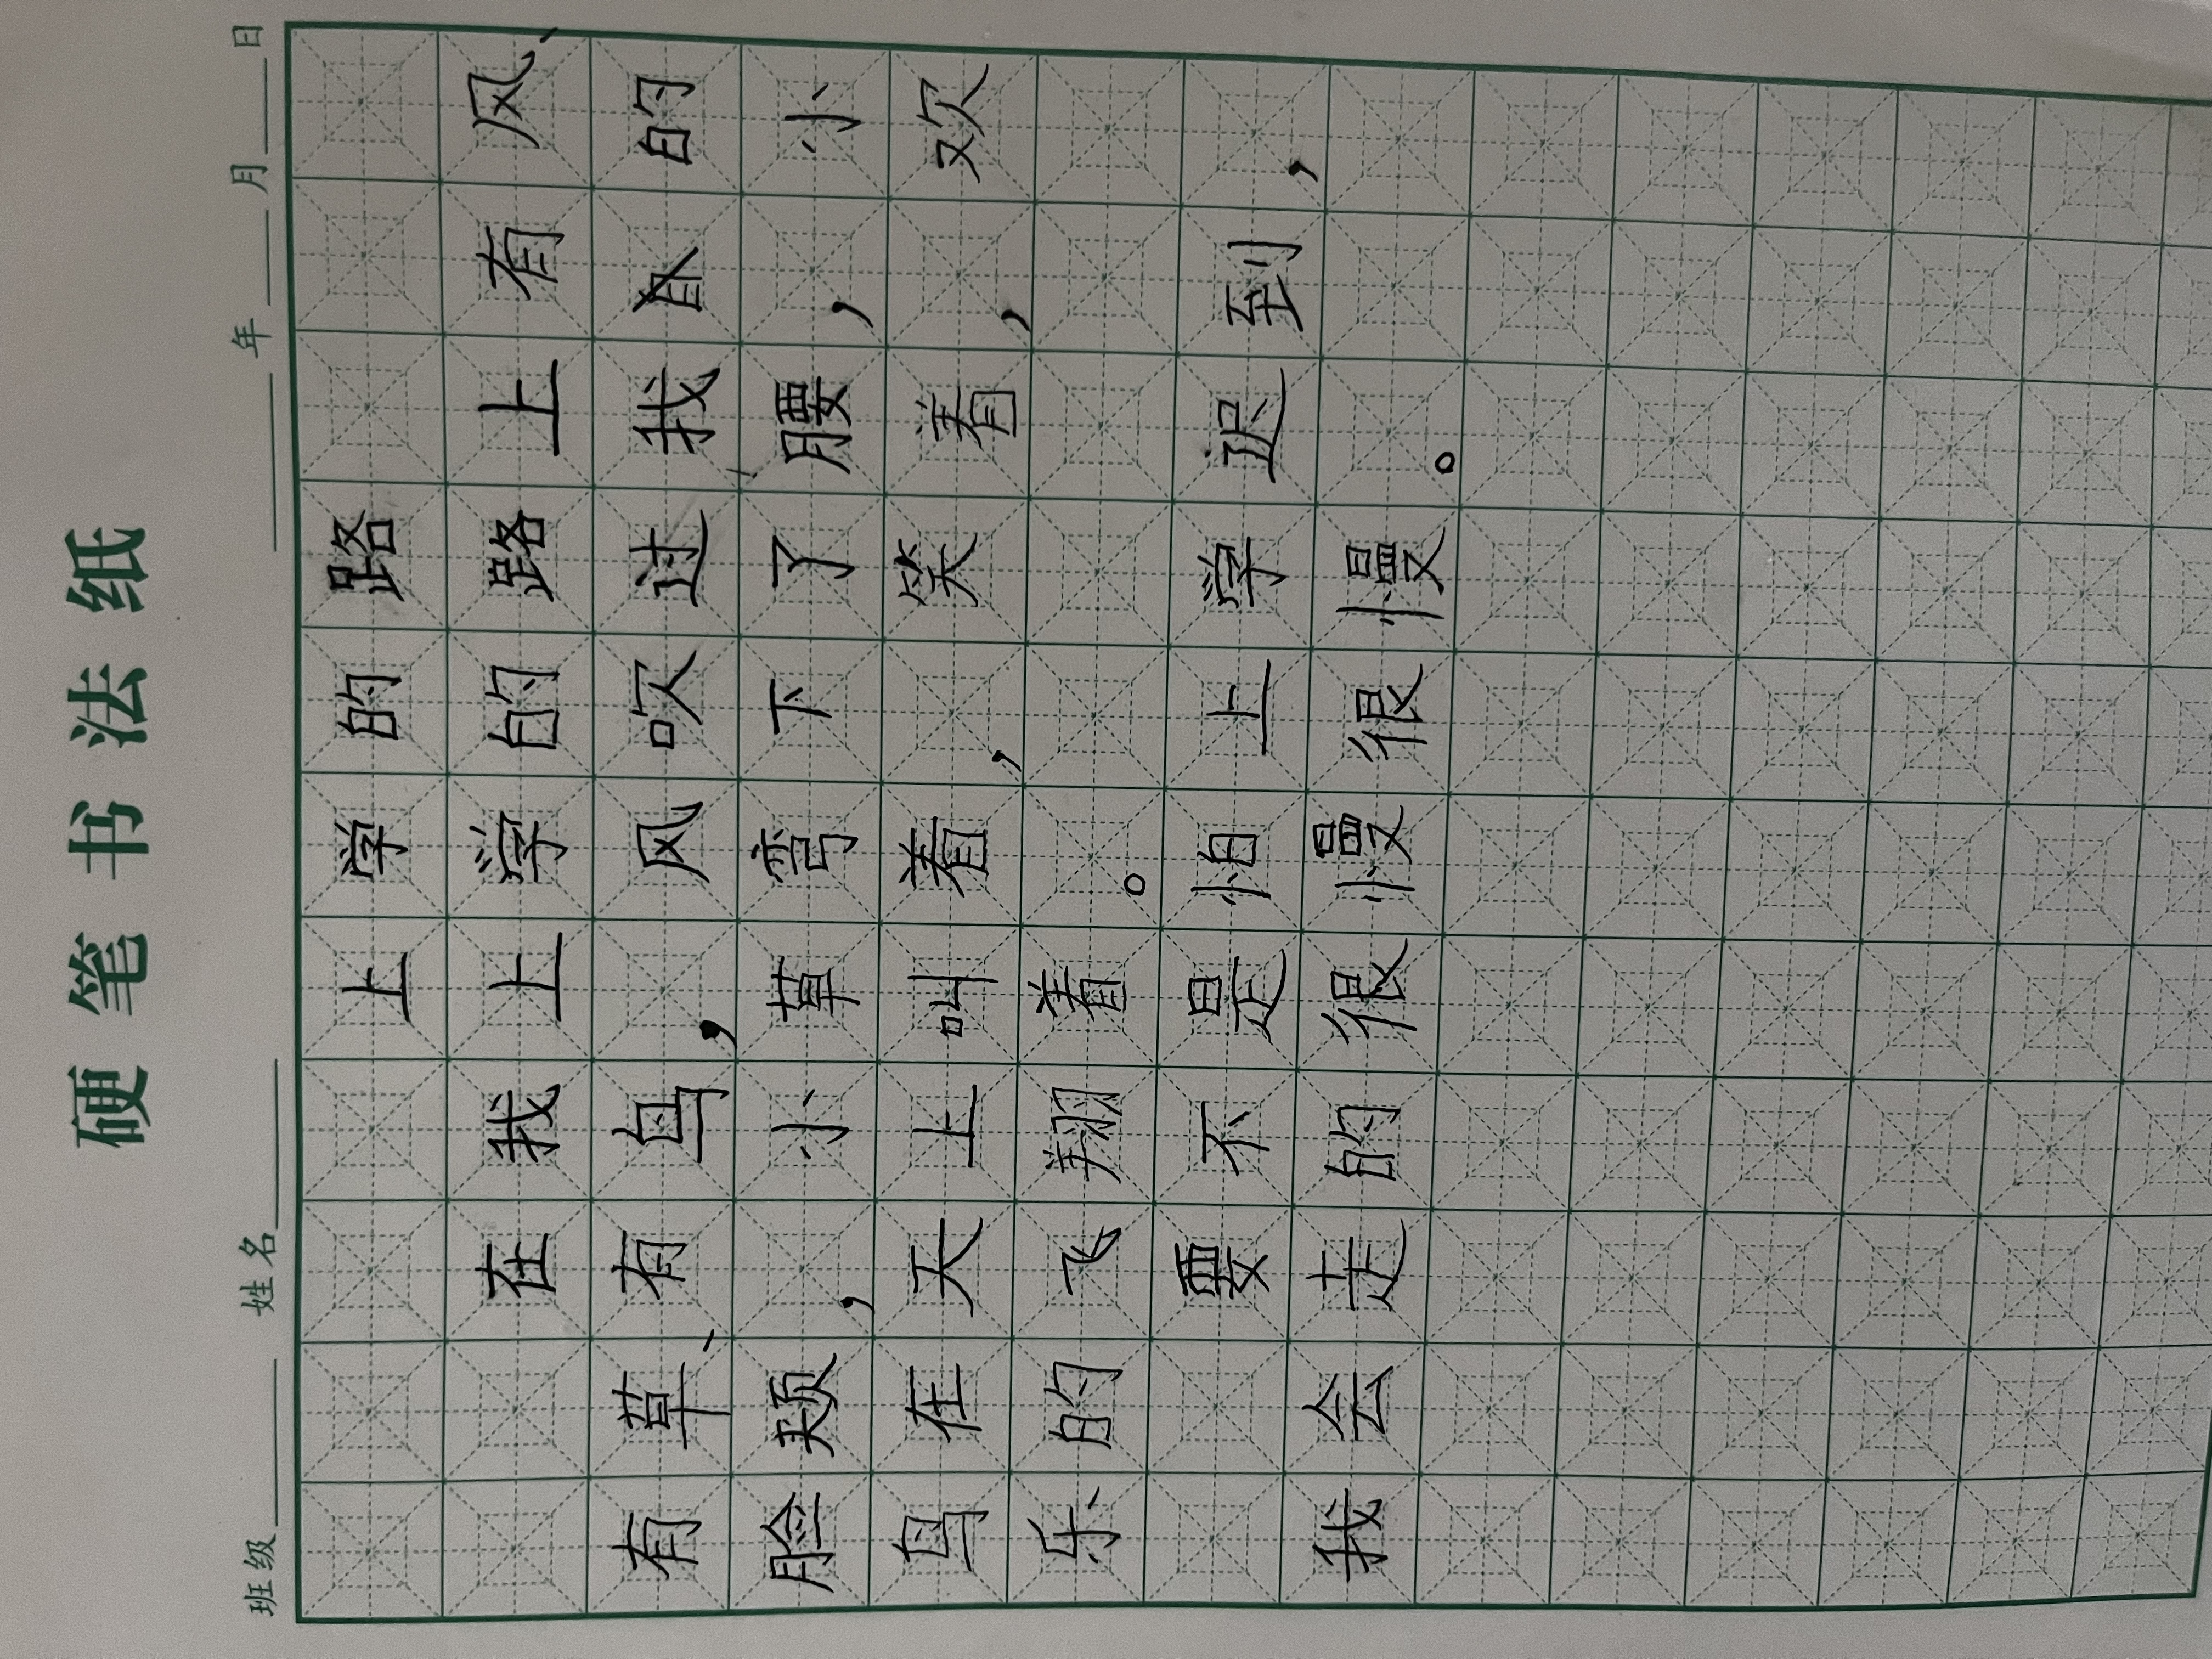 硬笔书法纸
班级 姓名 年 月 日
上学的路
在我上学的路上有风、
有草、有鸟，风吹过我的
脸颊，小草弯下了腰，小
鸟在天上叫着，笑着，欢
乐的飞翔着。
要不是怕上学迟到，
我会走的很慢很慢。